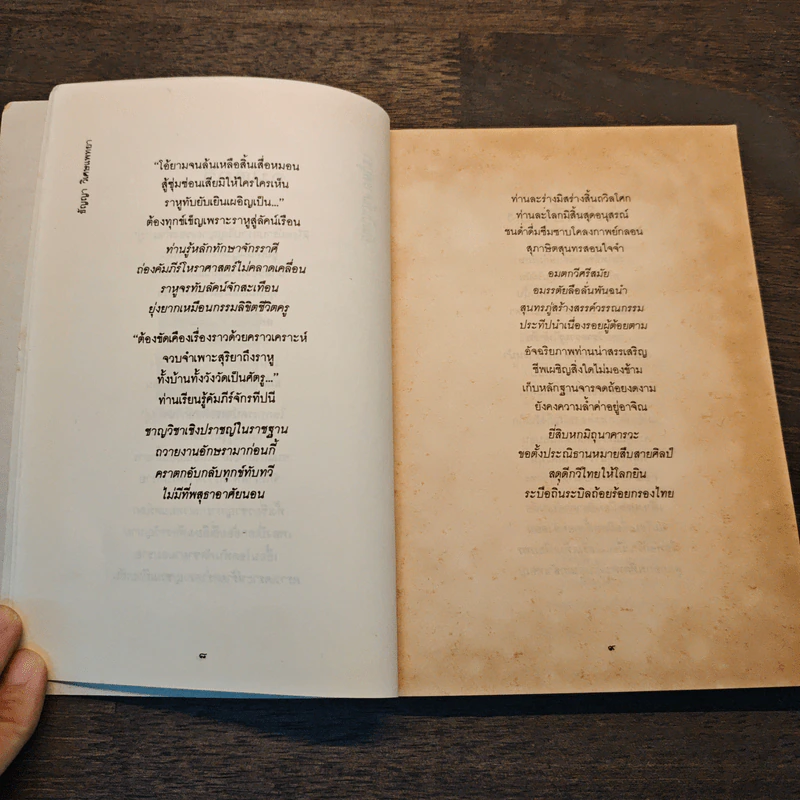 ธัญญา วิเศษแพทยา
“ไอ้ยามจนล้นเหลือสิ้นเสื่อหมอน
สู้ซุ่มซ่อนเสียมิให้ใครใครเห็น
ราหูทับยับเยินเผอิญเป็น...”
ต้องทุกข์เข็ญเพราะราหูสู่ลัคน์เรือน
ท่านรู้หลักทักษาจักรราศี
ถ่องคัมภีร์โหราศาสตร์ไม่คลาดเคลื่อน
ราหูจรทับลัคน์จักสะเทือน
ยุ่งยากเหมือนกรรมลิขิตชีวิตครู
“ต้องขัดเคืองเรื่องราวด้วยคราวเคราะห์
จวบจำเพาะสุริยาถึงราหู
ทั้งบ้านทั้งวังวัดเป็นศัตรู...”
ท่านเรียนรู้คัมภีร์จักรทีปนี
ชาญวิชาเชิงปราชญ์ในราชฐาน
ถวายงานอักษรามาก่อนกี้
คราตกอับกลับทุกข์ทับทวี
ไม่มีที่พสุธาอาศัยนอน
๘
ท่านละร่างมิสร่างสิ้นถวิลโศก
ท่านละโลกมิสิ้นสุดอนุสรณ์
ชนด่ำดื่มซึมซาบโคลงกาพย์กลอน
สุภาษิตสุนทรสอนใจจำ
อมตกวีศรีสมัย
อมรรตัยลือลั่นพันฉนำ
สุนทรภู่สร้างสรรค์วรรณกรรม
ประทีปนำเนื่องรอยผู้ด้อยตาม
อัจฉริยภาพท่านน่าสรรเสริญ
ชีพเผชิญสิ่งใดไม่มองข้าม
เก็บหลักฐานจารจดถ้อยงดงาม
ยังคงความล้ำค่าอยู่อาจิณ
ยี่สิบหกมิถุนาคารวะ
ขอตั้งประณิธานหมายสืบสายศิลป์
สดุดีกวีไทยให้โลกยิน
ระบือถิ่นระบิลถ้อยร้อยกรองไทย
๙